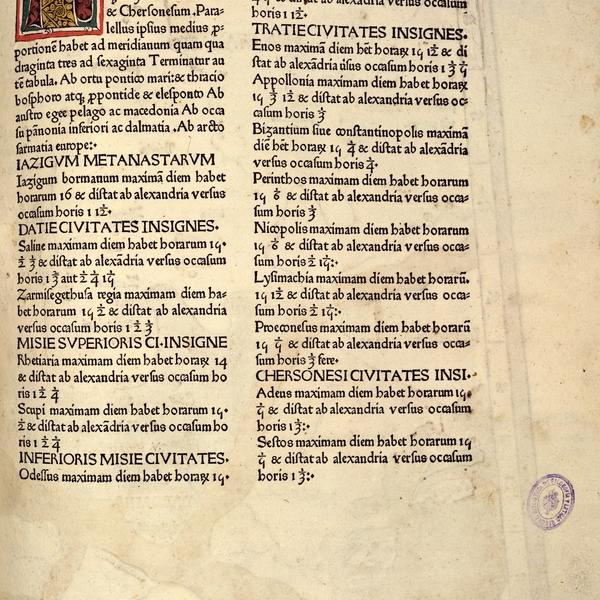 & Chersonesum .Para-
lellus ipsius medius ꝓ-
portionē habet ad meridianum quam qua
draginta tres ad sexaginta Terminatur au
tē tabula. Ab ortu pontico mari:& thracio
bosphoro atqꝫ ꝓpontide & elesponto Ab
austro egeo pelago ac macedonia Ab occa
su pānonia inferiori ac dalmatia .Ab arcto
sarmatia europe:·
IAZIGVM METANASTARVM
Iazigum bormanum maximā diem habet
horarum 16 & distat ab alexandria versus
occasum horis 1 12·
DATIE CIVITATES INSIGNES·
Saline maximam diem habet horarum 19·
2 3 & distat ab alexādria versus occasum
horis 1 3 aut 2 4 19
Zarmisegethusa regia maximam diem ha-
bet horarum 19 2 & distat ab alexandria
versus occasum horis 1 2 3
MISIE SVPERIORIS CI·INSIGNE
Rhetiaria maximam diem habet horaꝝ 14
& distat ab alexandria versus occasum ho
ris 1 4
Scupi maximam diem habet horarum 19·
2 & distat ab alexādria versus occasum ho
ris 1 2 4
INFERIORIS MISIE CIVITATES·
Odessus maximam diem habet horaꝝ 19·
horis 1 2·
TRATIE CIVITATES INSIGNES·
Enos maximā diem hēt horaꝝ 19 12 & di
stat ab alexādria ūsus occasum horis 1 3 9
Appollonia maximam diem habet horaꝝ
19 3 12 & distat ab alexandria ūsus oc-
casum horis 3
Bizantium siue constantinopolis maximā
diē hēt horaꝝ 19 4 & distat ab alexādria
versus occasum horis 4·
Perinthos maximam diem habet horarum
19 6 & distat ab alexandria versus occa-
sum horis 3
Nicopolis maximam diem habet horarum
19 6 & distat ab alexandria ūsus occa-
sum horis 2 19:·
Lysimachia maximam diem habet horarū.
19 12 & distat ab alexandria versus occa-
sum horis 2 19:·
Proeconesus maximam diem habet horarū
19 9 & distat ab alexandria versus occa-
sum horis 3 fere·
CHERSONESI CIVITATES INSI·
Adeus maximam diem habet horarum 19·
9 & distat ab alexandria versus occasum
horis 1 3:·
Sestos maximam diem habet horarum 19
9 & distat ab alexandria versus occasum
horis 1 3:·